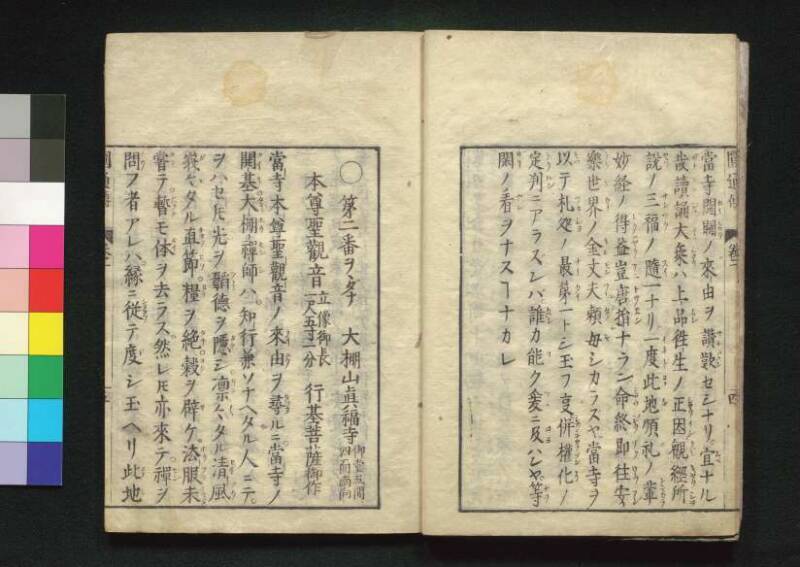 當寺開闢ノ來由ヲ讃歎セシナリ宜ナル
哉讀誦大乘ハ上品徃生ノ正因觀經所
說ノ三福ノ隨一ナリ一度此地順礼ノ輩
妙経ノ得益豈唐捐ナラン命終即往安
樂世界ノ金文夫頼母シカラスヤ當寺ヲ
以テ札処ノ最第一トシ玉フ叓併權化ノ
定判ニアラズンバ誰カ能ク爰ニ及ハンヤ等
閑ノ看ヲナスヿナカレ
圓通傳 卷一 四
〇第二番ヲタナ 大棚山眞福寺 御堂五間四面南向
本尊聖觀音 立像御長一尺五寸二分 行基菩薩御作
當寺本尊聖觀音ノ來由ヲ尋ルニ當寺ノ
開基大棚禪師ハ知行兼ソナヘタル人ニテ
ヲハセ𪜈光ヲ韜德ヲ隱シ凛々タル清風
巍々タル直節糧ヲ絶穀ヲ辟ケ法服未
甞テ暫モ体ヲ去ラス然レ𪜈亦來テ禪ヲ
問フ者アレハ縁ニ從テ度シ玉ヘリ此地